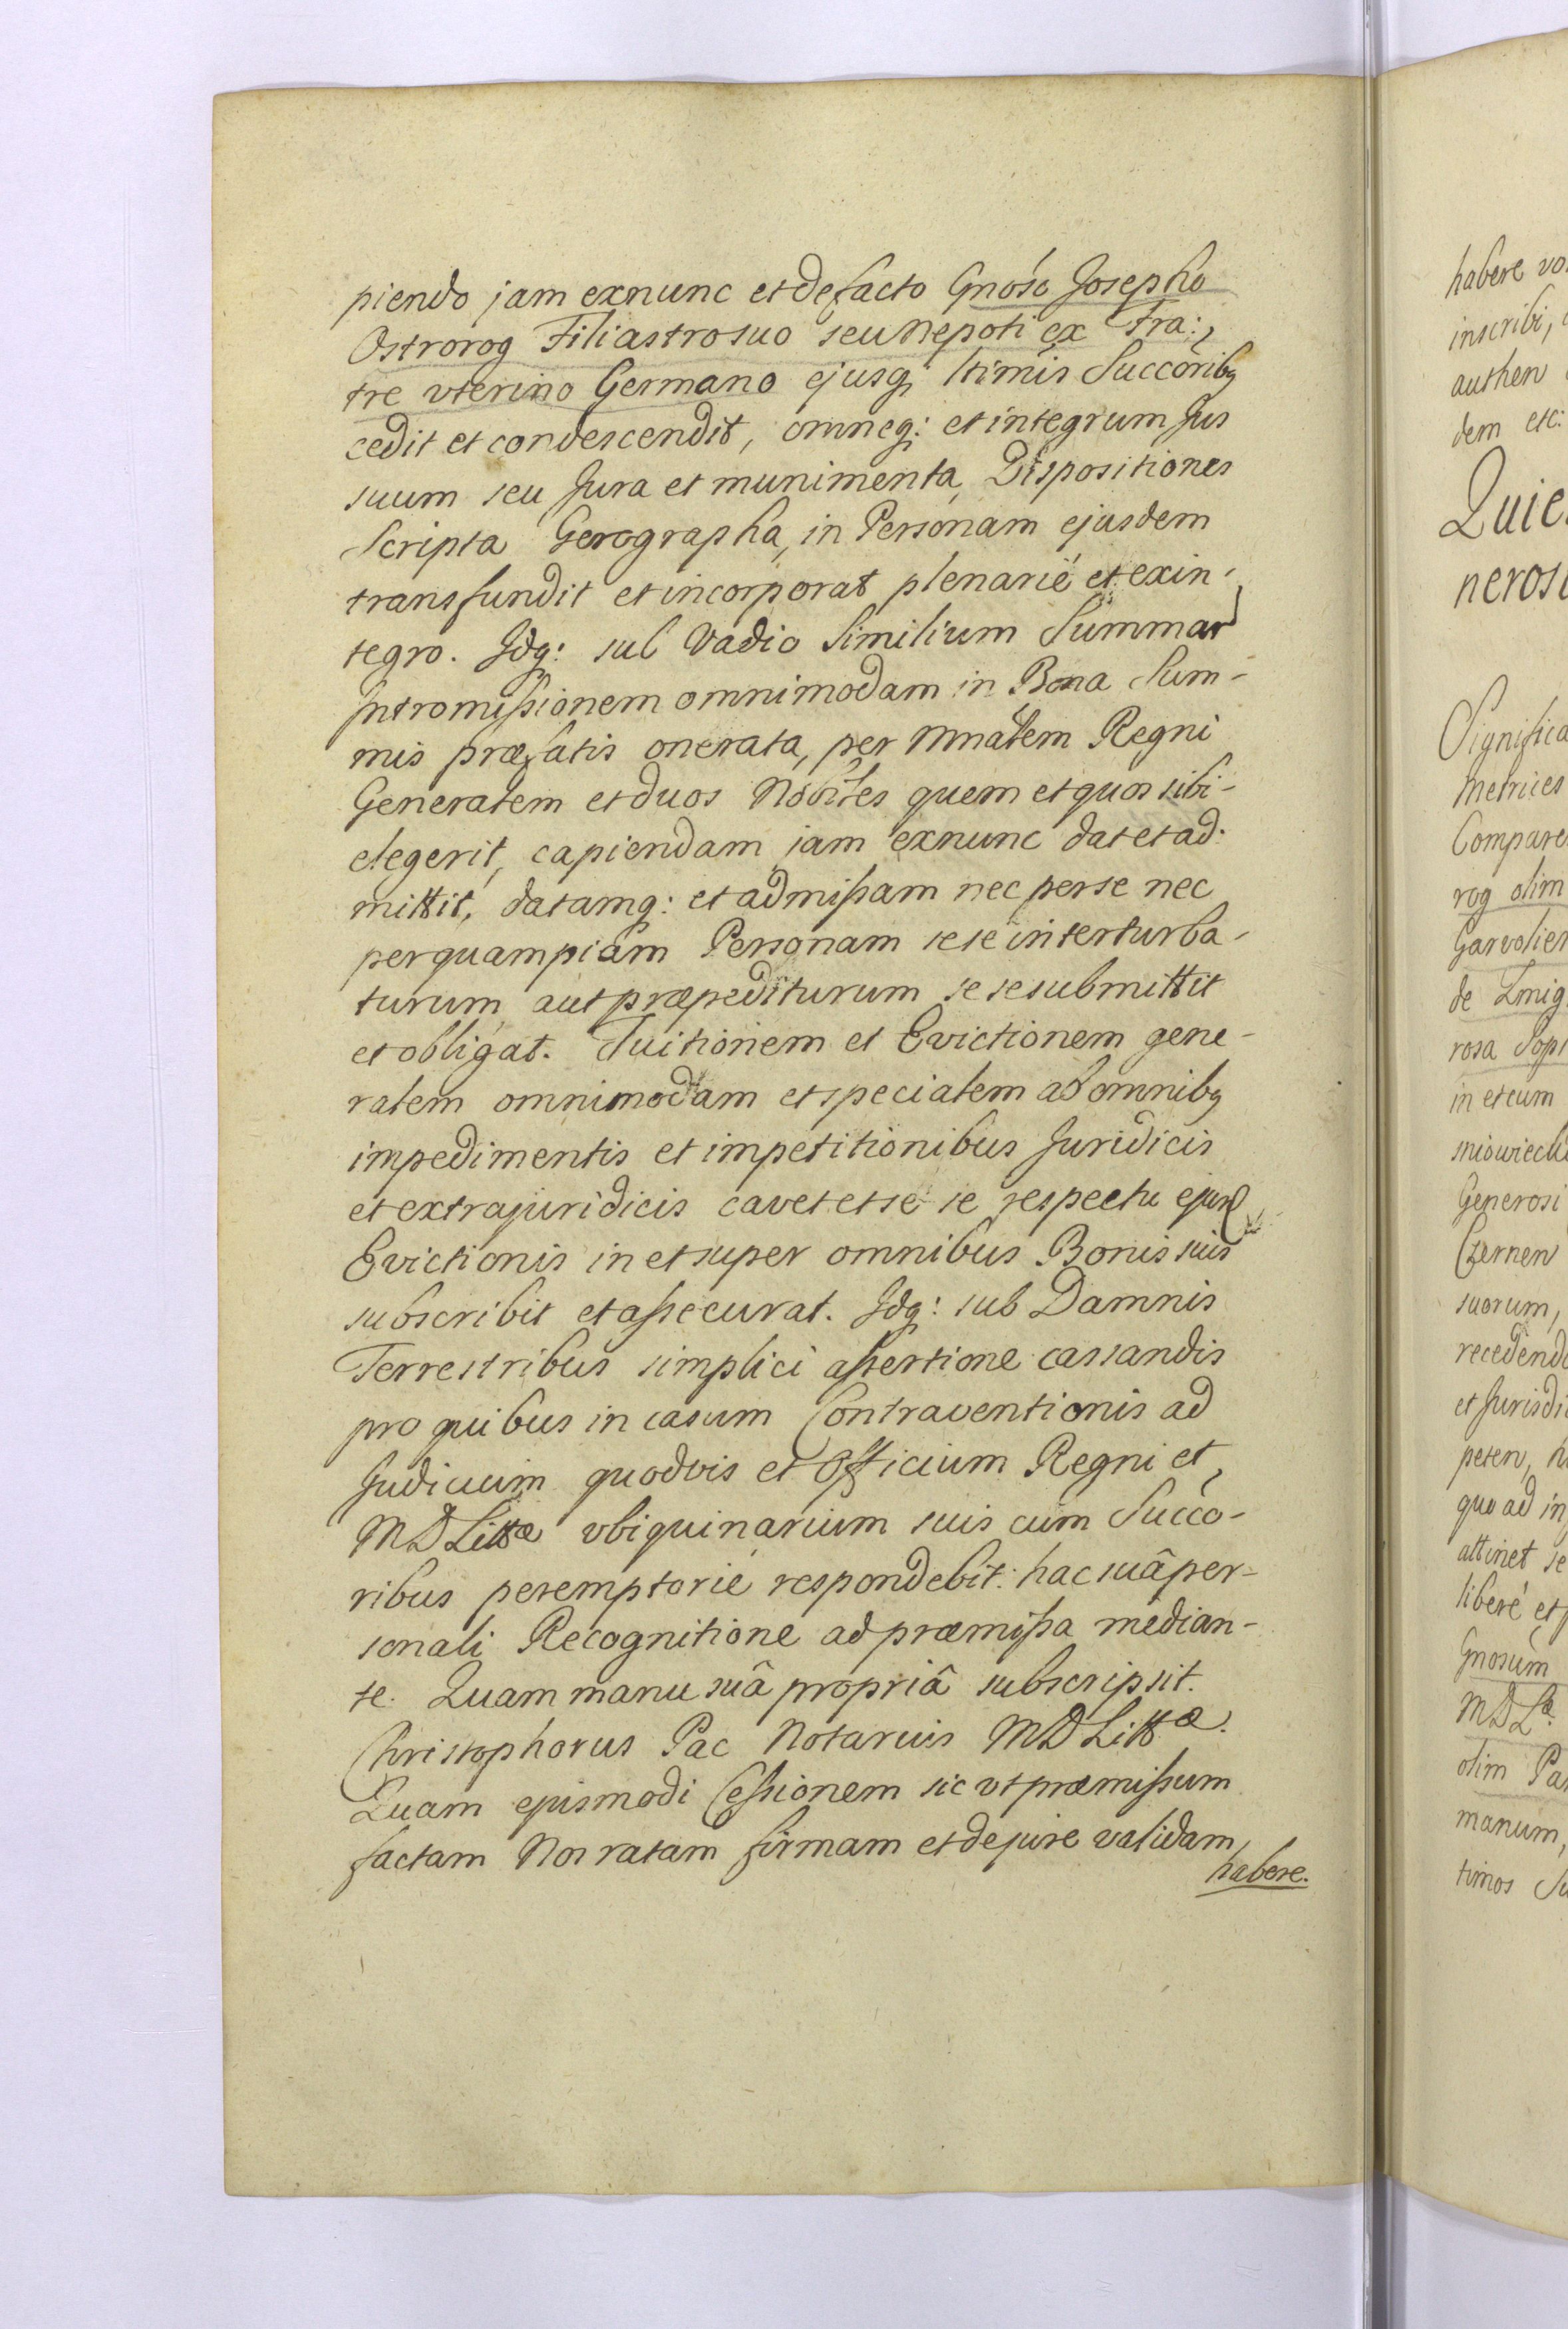 piendo jam exnunc et de facto Gnoso Josepho
Ostrorog Filiastro suo seu Nepoti ex Fra:
tre vterino Germano ejusq ltimis Succoribq
cedit et condescendit, omneq: et integrum Jus
suum seu Jura et munimenta, Dispositiones
Scripta Gerographa, in Personam ejusdem
transfundit et incorporat plenarie et exin-
tegro. Idq: sub Vadio similium Summar
Intromissionem omnimodam in Bona Sum-
mis præfatis onerata, per Mnalem Regni
Generalem et duos Nobiles quem et quos sibi-
elegerit, capiendam jam exnunc dat et ad-
mittit, datamq: et admissam nec per se nec
per quampiam Personam sese interturba-
turum aut præpediturum sese submittit
et obligat. Tuitionem et Evictionem gene-
ralem omnimodam et specialem ab omnibq
impedimentis et impetitionibus Juridicis
et extrajuridicis cavet et se se respectu ejusd
Evictionis in et super omnibus Bonis suis
subscribit et assecurat. Idq: sub Damnis
Terrestribus simplici assertione cassandis
pro quibus in casum Contraventionis ad
Judicium quodvis et Officium Regni et
MD Littæ vbiquinarium suis cum Succo-
ribus peremptorie respondebit: hac suâ per-
sonali Recognitione ad præmissa median-
te. Quam manu suâ propriâ subscripsit.
Christophorus Pac Notarius MD Littæ.
Quam ejusmodi Cessionem sic vt præmissum
factam Nos ratam firmam et de jure validam
habere.
habere
inscribi,
authen
dem etc:
Quie
neros
Significa
Metrices
Compare
rog olim
Garvolien
de Zmig
rosa Sop
in et cum
Generosi
Czernen
suorum,
recedend
et Jurisdi
peten,
quo ad in
attinet se
liberé et
Gnosum
MD Læ.
olim Pa
manum,
timos Su